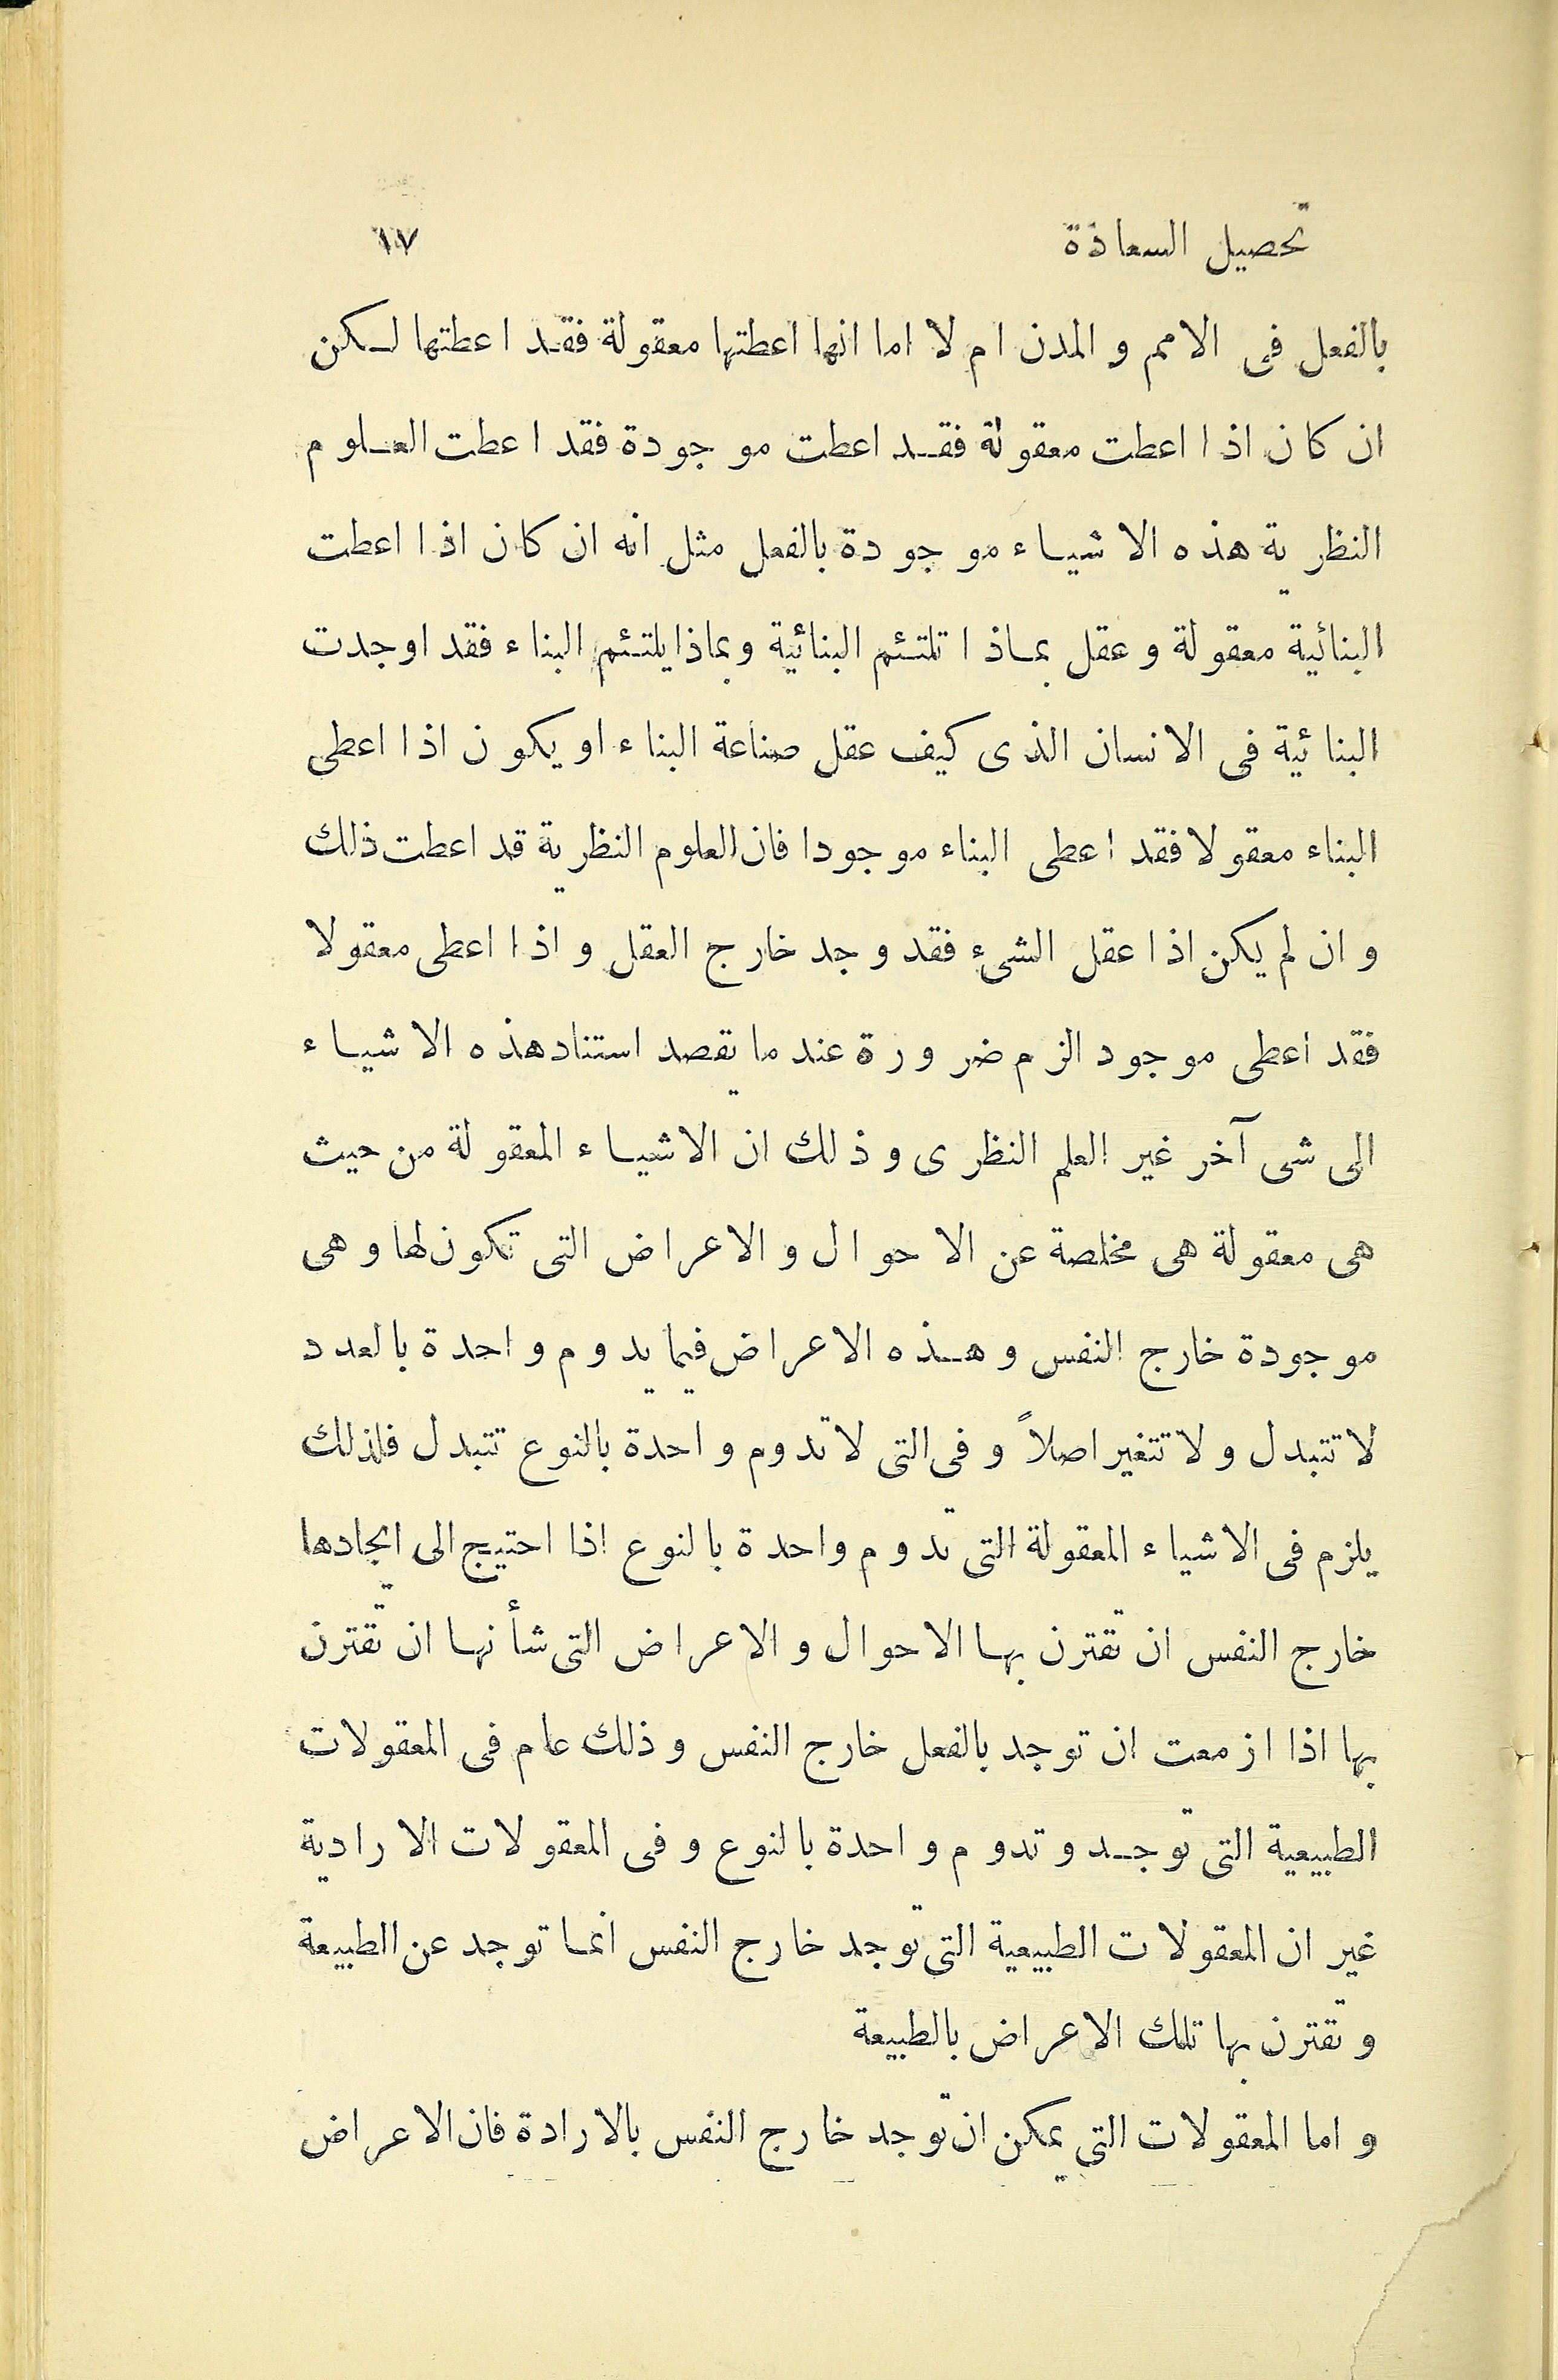 تحصيل السعادة ١٧
بالفعل فى الامم و المدن ام لا اما انها اعطتها معقولة فقد اعطتها لكن
ان كان اذا اعطت معقولة فقد اعطت موجودة فقد اعطت العلوم
النظرية هذه الاشياء موجودة بالفعل مثل انه ان كان اذا اعطت
البنائية معقولة و عقل بماذا تلتئم البنائية و بماذا يلتئم البناء فقد اوجدت
البنائية فى الانسان الذى كيف عقل صناعة البناء او يكون اذا اعطى
البناء معقولا فقد اعطى البناء موجودا فان العلوم النظرية قد اعطت ذلك
و ان لم يكن اذا عقل الشىء فقد وجد خارج العقل و اذا اعطى معقولا
فقد اعطى موجود الزم ضرورة عند ما يقصد استناد هذه الاشياء
الى شى آخر غير العلم النظرى و ذلك ان الاشياء المعقولة من حيث
هى معقولة هى مخلصة عن الاحوال و الاعراض التى تكون لها و هى
موجودة خارج النفس و هذه الاعراض فيما يدوم واحدة بالعدد
لا تتبدل و لا تتغير اصلاً و فى التى لا تدوم واحدة بالنوع تتبدل فلذلك
يلزم فى الاشياء المعقولة التى تدوم واحدة بالنوع اذا احتيج الى ايجادها
خارج النفس ان تقترن بها الاحوال و الاعراض التى شأنها ان تقترن
بها اذا ازمعت ان توجد بالفعل خارج النفس و ذلك عام فى المعقولات
الطبيعية التى توجد و تدوم واحدة بالنوع و فى المعقولات الارادية
غير ان المعقولات الطبيعية التى توجد خارج النفس انما توجد عن الطبيعة
و تقترن بها تلك الاعراض بالطبيعة
و اما المعقولات التى يمكن ان توجد خارج النفس بالارادة فان الاعراض